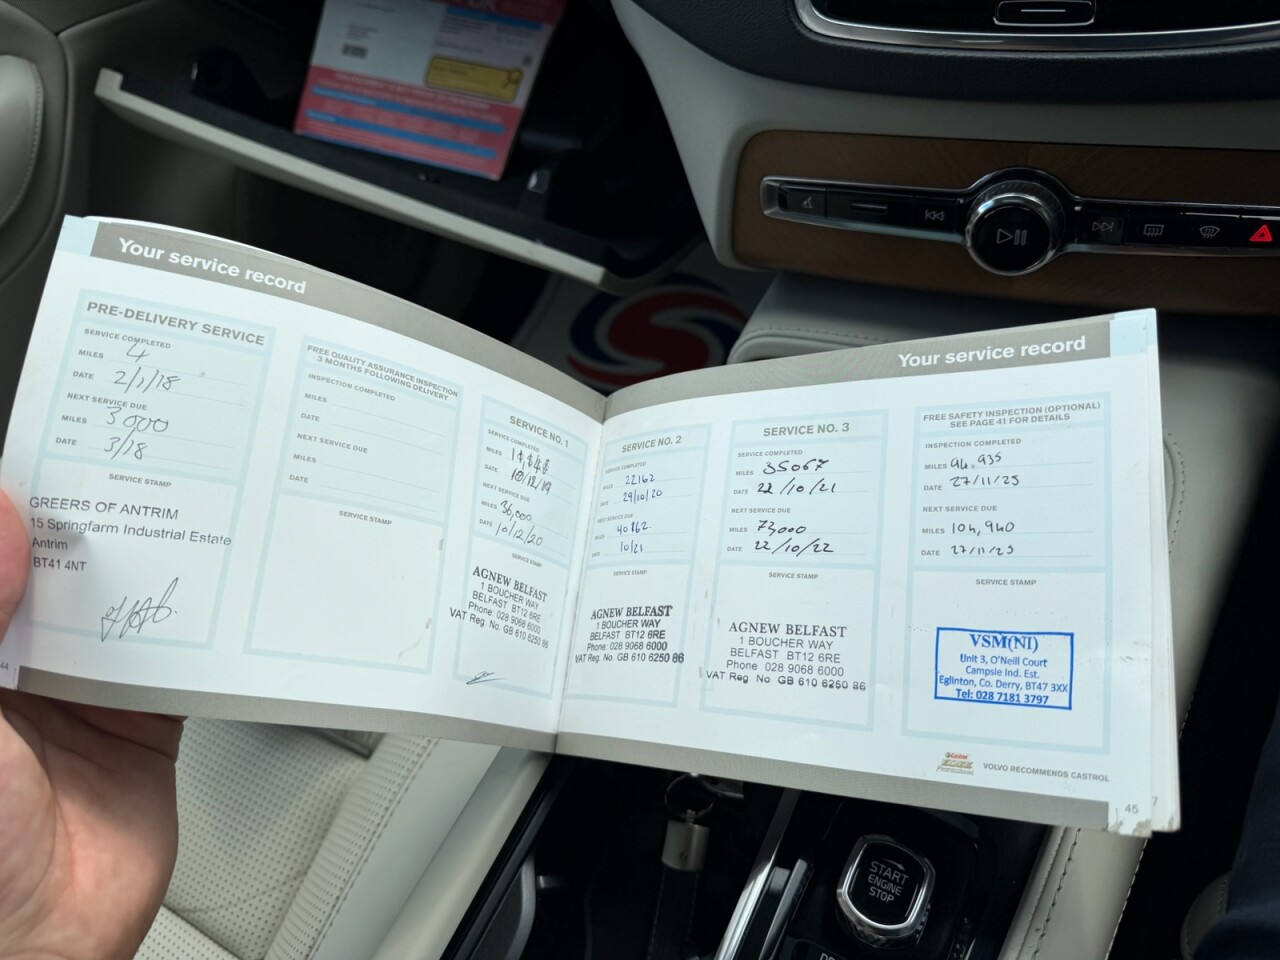 Your service record
PRE-DELIVERY SERVICE
SERVICE COMPLETED
MILES 4
DATE 2/1/18
NEXT SERVICE DUE
MILES 3000
DATE 3/18
SERVICE STAMP
GREERS OF ANTRIM
15 Springfarm Industrial Estate
Antrim
BT41 4NT
44
FREE QUALITY ASSURANCE INSPECTION
3 MONTHS FOLLOWING DELIVERY
INSPECTION COMPLETED
MILES
DATE
NEXT SERVICE DUE
MILES
DATE
SERVICE STAMP
SERVICE NO. 1
SERVICE COMPLETED
MILES
DATE 10/12/19
NEXT SERVICE DUE
MILES 36,000
DATE 10/12/20
SERVICE STAMP
AGNEW BELFAST
1 BOUCHER WAY
BELFAST BT12 6RE
Phone: 028 9068 6000
VAT Reg. No. GB 610 6250 86
Your service record
SERVICE NO. 2
SERVICE COMPLETED
MILES 22162
DATE 29/10/20
NEXT SERVICE DUE
MILES 40162
DATE 10/21
SERVICE STAMP
AGNEW BELFAST
1 BOUCHER WAY
BELFAST BT12 6RE
Phone: 028 9068 6000
VAT Reg. No. GB 610 6250 86
SERVICE NO. 3
SERVICE COMPLETED
MILES 35067
DATE 22/10/21
NEXT SERVICE DUE
MILES 73,000
DATE 22/10/22
SERVICE STAMP
AGNEW BELFAST
1 BOUCHER WAY
BELFAST BT12 6RE
Phone 028 9068 6000
VAT Reg No GB 610 6250 86
FREE SAFETY INSPECTION (OPTIONAL)
SEE PAGE 41 FOR DETAILS
INSPECTION COMPLETED
MILES 94.935
DATE 27/11/25
NEXT SERVICE DUE
MILES 104,940
DATE 27/11/25
SERVICE STAMP
VSM(NI)
Unit 3, O'Neill Court
Campsie Ind. Est.
Eglinton, Co. Derry, BT47 3XX
Tel: 028 7181 3797
Castrol
EDGE
Professional
VOLVO RECOMMENDS CASTROL
45
7
START
ENGINE
STOP